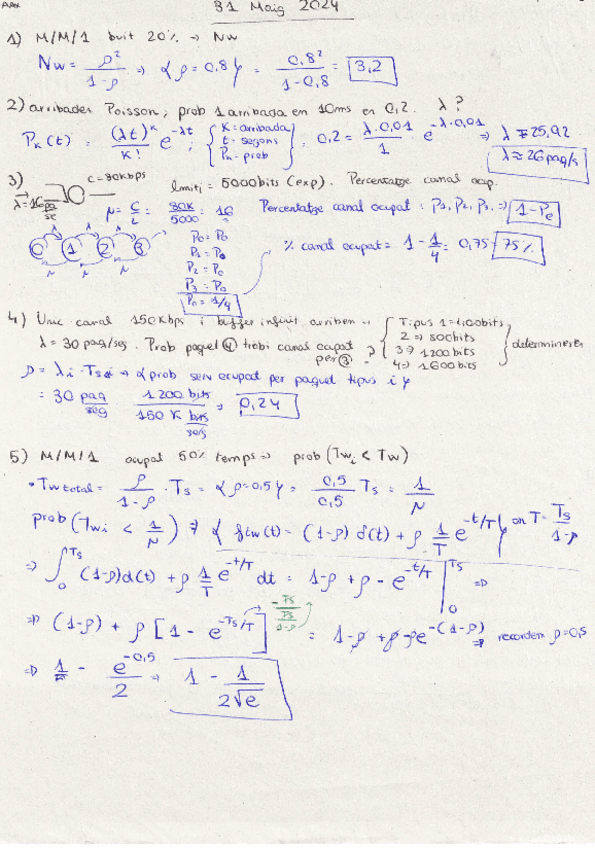 31 Maig 2024
1) M/M/1 buit 20% → Nw
Nw = ρ²/(1-ρ) ⇒ { ρ = 0,8 } = 0,8²/(1-0,8) = 3,2
2) arribades Poisson; prob 1 arribada en 10ms es 0,2. λ?
Pk(t) = (λt)^k/k! e^-λt ; { K = arribada
t = segons
Pk = prob } = 0,2 = λ·0,01/1 · e^-λ·0,01 ⇒ λ = 25,92
λ ≈ 26 paq/s
3) C = 80Kbps
λ = 16 paq/sec
Lmitj = 5000bits (exp). Percentatge canal ocup.
μ = C/L = 80K/5000 = 16/s
Percentatge canal ocupat: P1, P2, P3 ⇒ 1-P0
0 1 2 3
λ λ λ
μ μ μ
P0 = P0
P1 = P0
P2 = P0
P3 = P0
P0 = 1/4
% canal ocupat = 1 - 1/4 = 0,75 = 75%
4) Unic canal 150Kbps i buffer infinit arriben →
{ Tipus 1 = 400bits
2 ⇒ 800bits
3 ⇒ 1200bits
4 ⇒ 1600bits } deterministes
λ = 30 paq/seg. Prob paquet 4 trobi canal ocupat per 3 ?
ρ = λi · Tsi ⇒ { prob serv ocupat per paquet tipus i }
= 30 paq/seg 1200 bits/150 K bits/seg ⇒ 0,24
5) M/M/1 ocupat 50% temps ⇒ prob(Twi < Tw)
• Tw total = ρ/(1-ρ) · Ts = { ρ = 0,5 } = 0,5/0,5 Ts = 1/μ
prob(Twi < 1/μ) ⇒ { ftw(t) = (1-ρ) δ(t) + ρ 1/T e^-t/T } on T = Ts/(1-ρ)
⇒ ∫₀^Ts (1-ρ)δ(t) + ρ 1/T e^-t/T dt = 1-ρ + ρ - e^-t/T |₀^Ts ⇒
⇒ (1-ρ) + ρ [1 - e^-Ts/T] = 1-ρ + ρ - ρe^-(1-ρ) ⇒ recordem ρ=0,5
-Ts/(Ts/(1-ρ))
⇒ 1 - e^-0,5/2 ⇒ 1 - 1/(2√e)